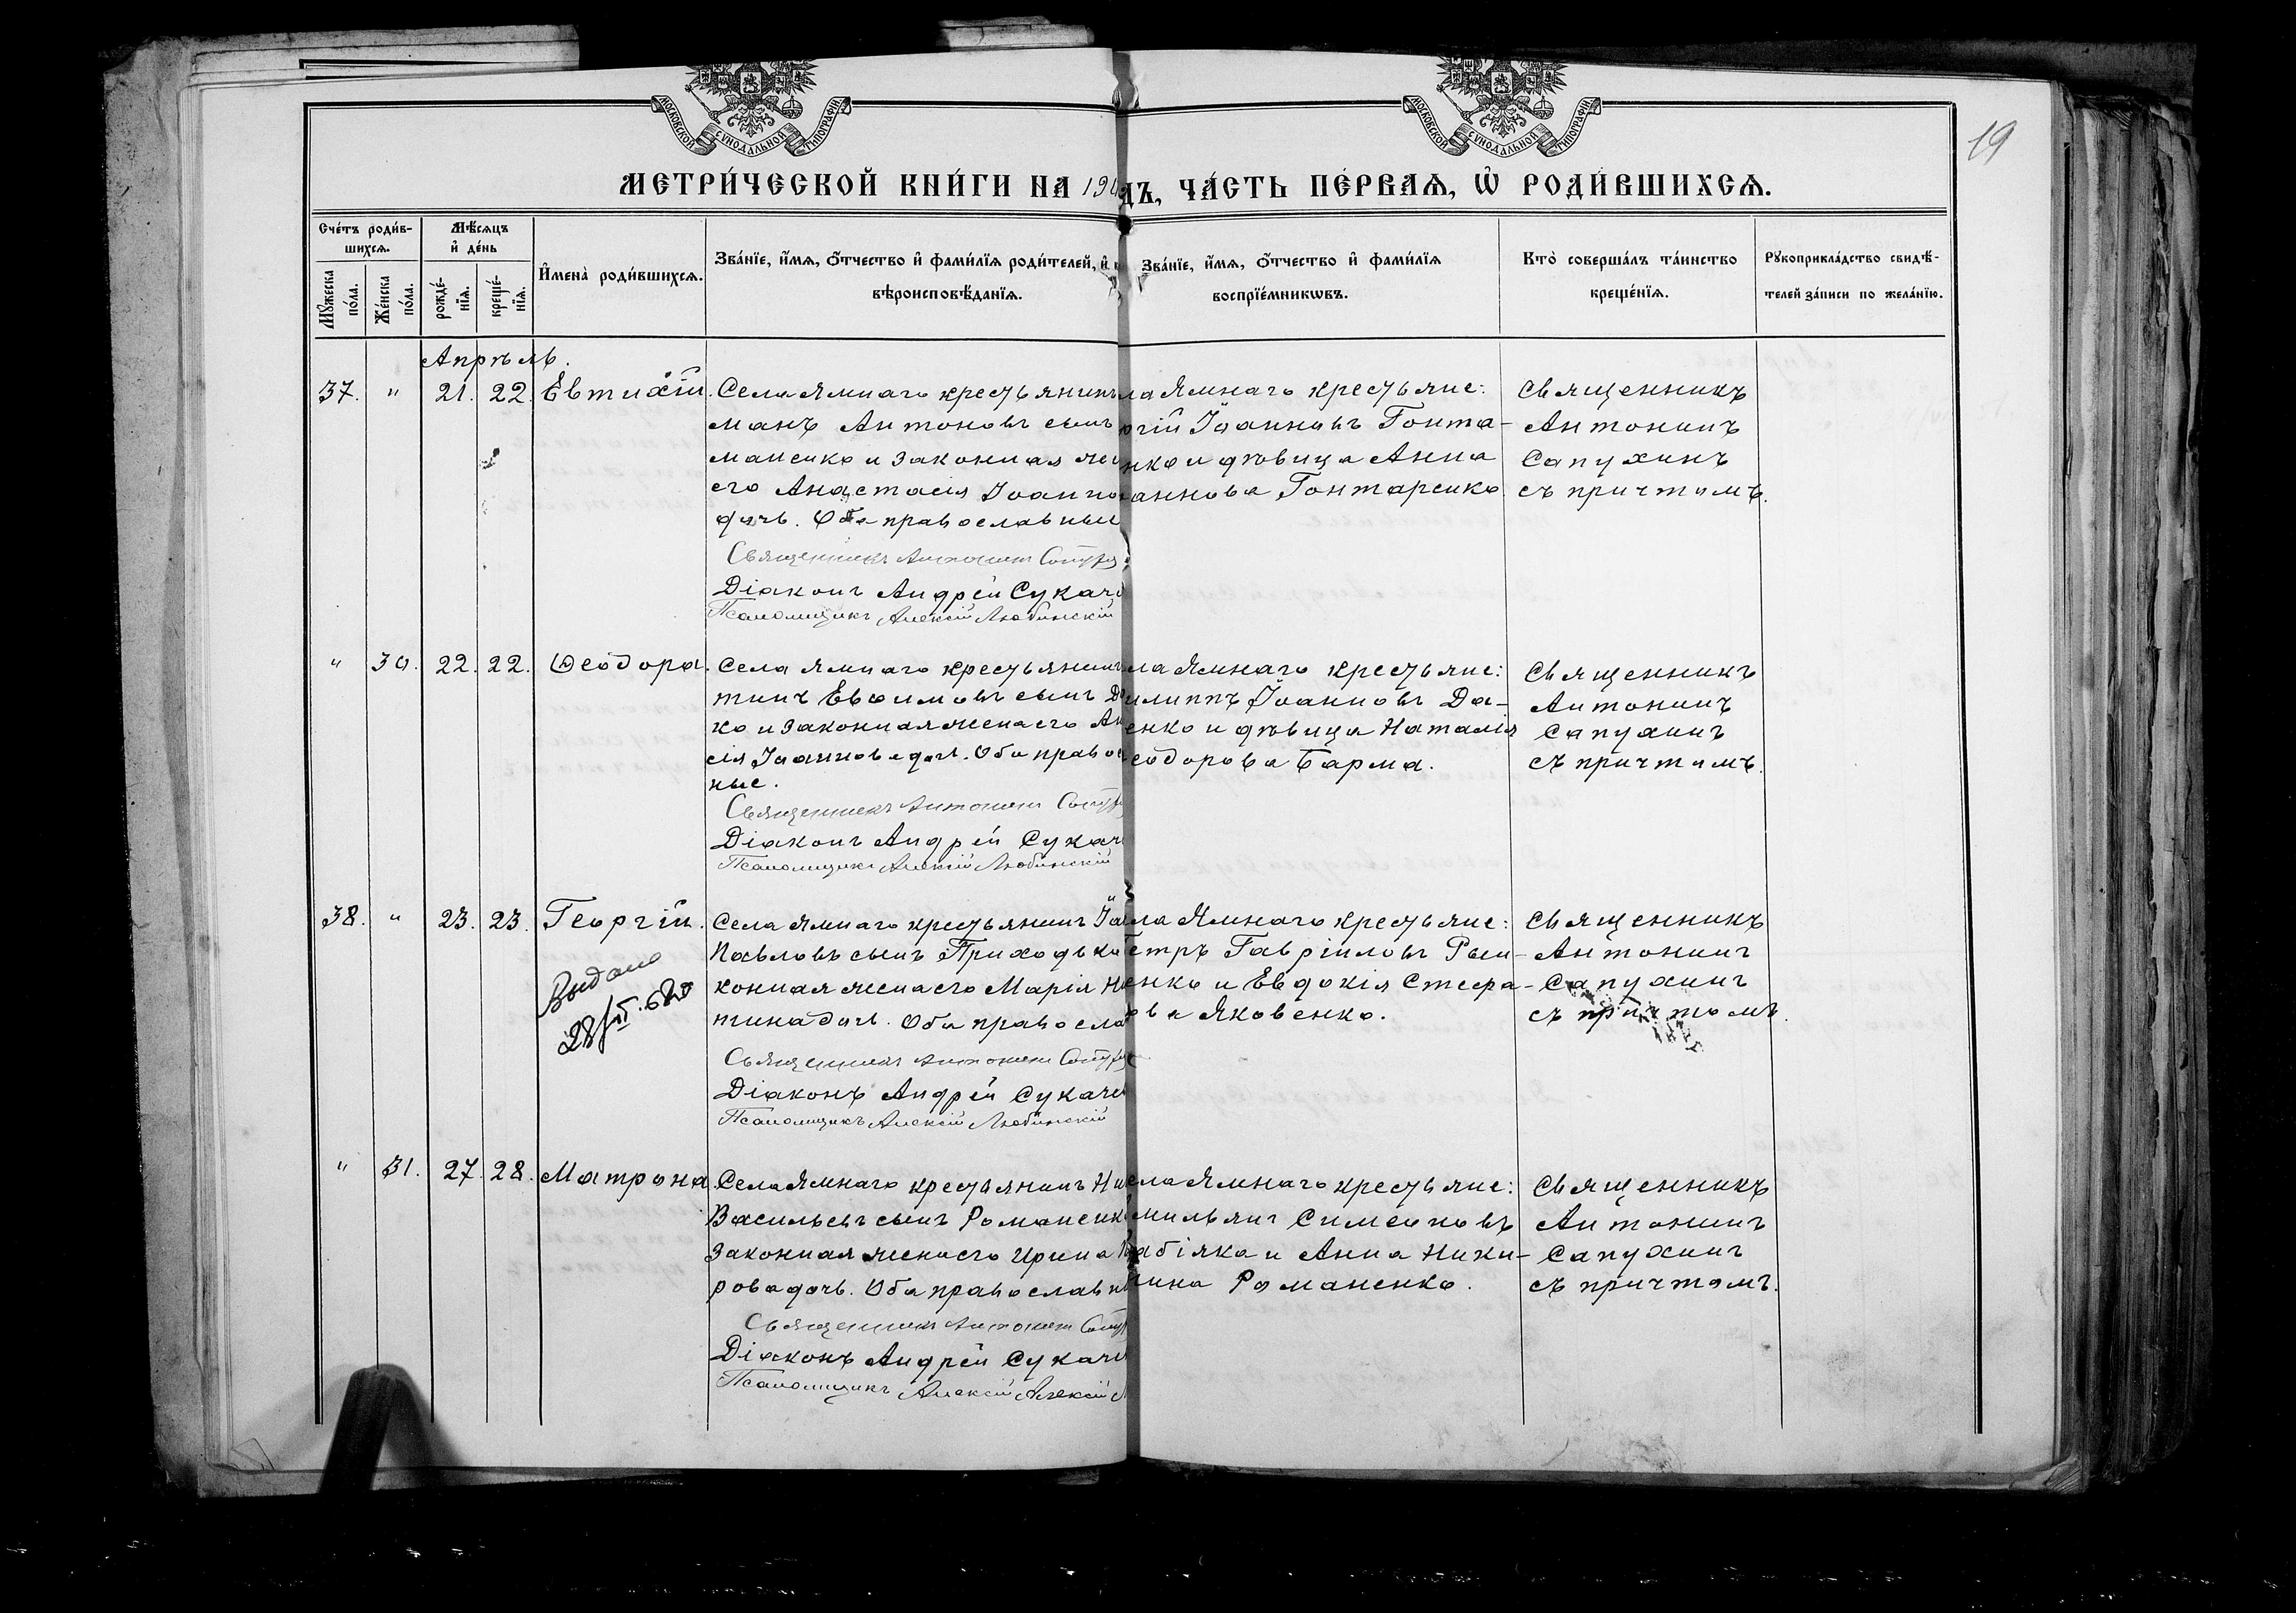 МОСКОВСКОЙ СѴНОДАЛЬНОЙ ТИПОГРАФІИ
МОСКОВСКОЙ СѴНОДАЛЬНОЙ ТИПОГРАФІИ
19
МЕТРИ́ЧЕСКОЙ КНИ́ГИ НА 190
ДЪ, ЧА́СТЬ ПЕ́РВАѦ, Ѡ҆ РОДИ́ВШИХСѦ.
Сче́тъ роди́в-
шихсѧ.
Мꙋжеска по́ла.
Же́нска по́ла.
Мѣ́сѧцъ
и҆ де́нь
рожде́-
нїѧ.
креще́-
нїѧ.
И҆мена̀ роди́вшихсѧ.
Зва́нїе, и҆́мѧ, ѻ҆́тчество и҆ фами́лїѧ роди́телей, и҆
вѣроисповѣ́данїѧ.
Зва́нїе, и҆́мѧ, ѻ҆́тчество и҆ фами́лїѧ
воспрїе́мникѡвъ.
Кто̀ соверша́лъ та́инство
креще́нїѧ.
Рꙋкоприкла́дство свидѣ́-
телей за́писи по жела́нїю.
Апрѣль.
37. " 21. 22. Евтихій. Села Ямнаго крестьянинъ
манъ Антоновъ сынъ
маненко и законная же
его Анастасія Іоанно
дочь. Оба православные
Священникъ Антонинъ Сапух
Діаконъ Андрей Сукач
Псаломщикъ Алексій Любинскій
ла Ямнаго крестьяне:
ргій Іоанновъ Гонта-
нко и дѣвица Анна
анновa Гонтаренко.
Священникъ
Антонинъ
Сапухинъ
съ причтомъ.
" 30. 22. 22. Ѳеодора. Села Ямнаго крестьянинъ
тинъ Евѳимовъ сынъ Д
ко и законная жена его Ан
сія Іоаннова дочь. Оба правос
ные.
Священникъ Антонинъ Сапух
Діаконъ Андрей Сукач
Псаломщикъ Алексій Любинскій
ла Ямнаго крестьяне:
илиппъ Іоанновъ Да-
енко и дѣвица Наталія
еодорова Барма.
Священникъ
Антонинъ
Сапухинъ
съ причтомъ.
38. " 23. 23. Георгій. Села Ямнаго крестьянинъ Іоа
Павловъ сынъ Приходько
конная жена его Марія Н
тина дочь. Оба правосла
Выдано
Священникъ Антонинъ Сапух
Діаконъ Андрей Сукаче
Псаломщикъ Алексій Любинскій
ла Ямнаго крестьяне:
етръ Гавріиловъ Рын-
енко и Евдокія Стефа-
ова Яковенко.
Священникъ
Антонинъ
Сапухинъ
съ причтомъ.
" 31. 27. 28. Матрона Села Ямнаго крестьянинъ Ни
Васильевъ сынъ Романенк
законная жена его Ирина
рова дочь. Оба православн
Священникъ Антонинъ Сапу
Діаконъ Андрей Сукаче
Псаломщикъ Алексій Алексій Л
ела Ямнаго крестьяне:
мильянъ Симеоновъ
абіяка и Анна Ники-
тина Романенко.
Священникъ
Антонинъ
Сапухинъ
съ причтомъ.